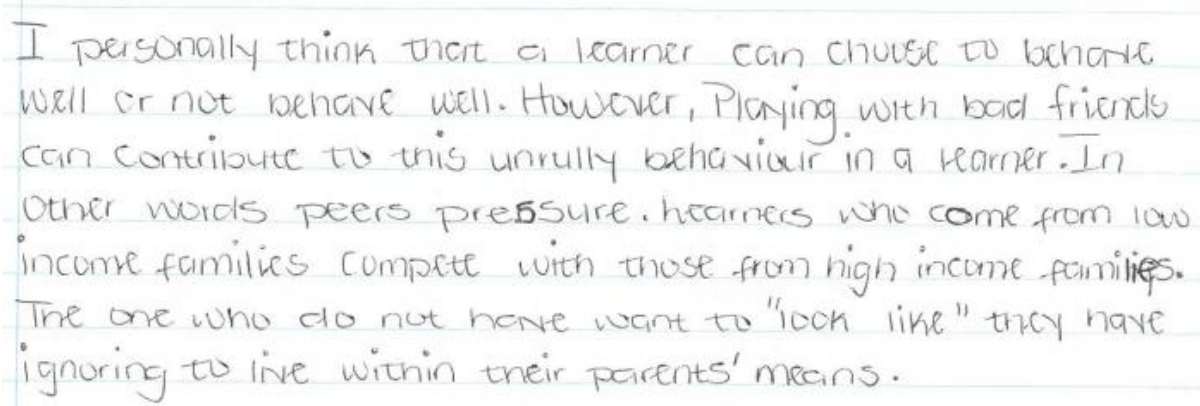 I personally think that a learner can choose to behave
well or not behave well. However, Playing with bad friends
can contribute to this unrully behaviour in a learner. In
other words peers pressure. Learners who come from low
income families compete with those from high income families.
The one who do not have want to "look like" they have
ignoring to live within their parents' means.